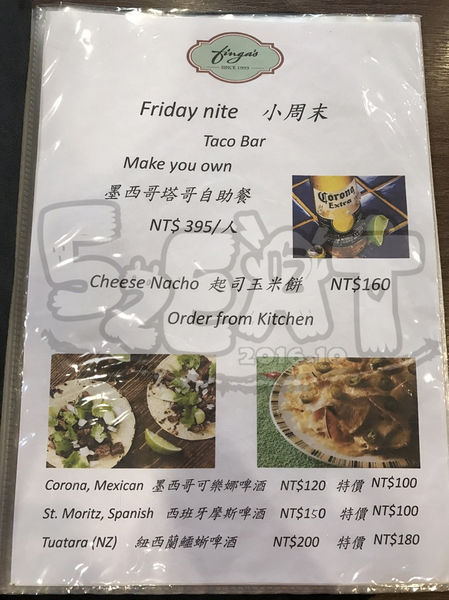 finga's
SINCE 1993
Friday nite 小周末
Taco Bar
Make you own
墨西哥塔哥自助餐
NT$ 395/人
Corona
Extra
Cheese Nacho 起司玉米餅 NT$160
Order from Kitchen
2016.10
Corona, Mexican 墨西哥可樂娜啤酒 NT$120 特價 NT$100
St. Moritz, Spanish 西班牙摩斯啤酒 NT$150 特價 NT$100
Tuatara (NZ) 紐西蘭鱷蜥啤酒 NT$200 特價 NT$180